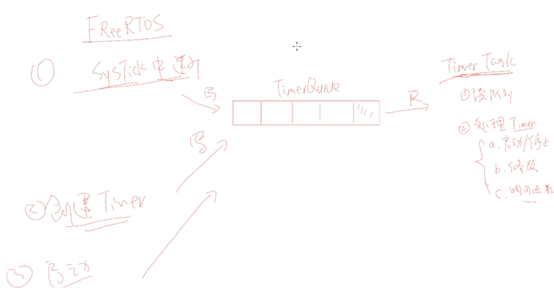 FReeRTOS
① SysTick中断
写
TimerQueue
R
Timer Task
①读队列
②处理Timer
a. 启动/停止
b. 修改
c. 调用函数
写
②创建Timer
③启动